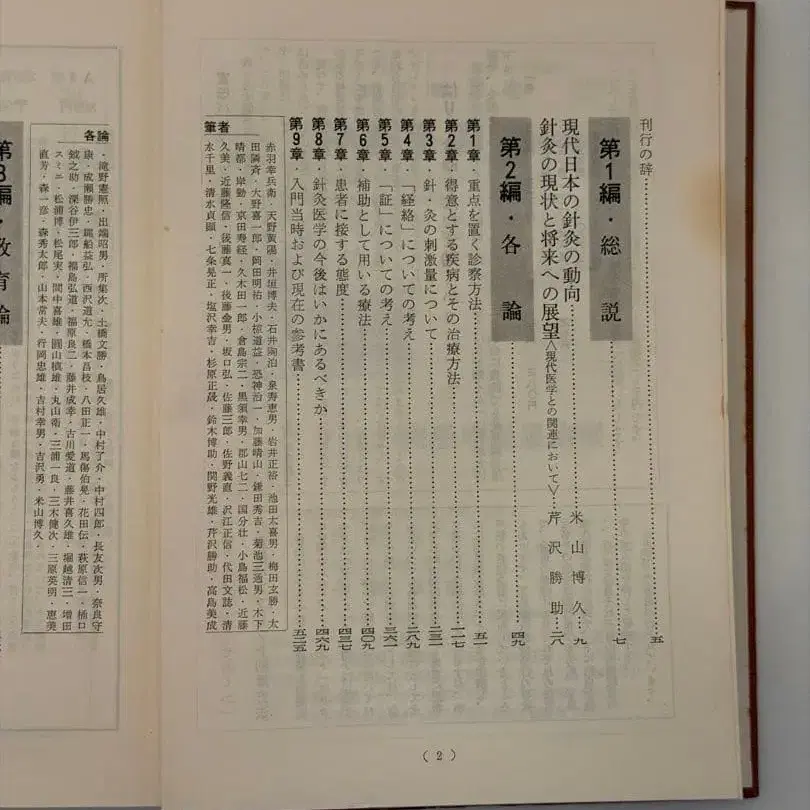 刊行の辞……五
第1編・総説……七
現代日本の針灸の動向……米山博久……九
針灸の現状と将来への展望〈現代医学との関連において〉…芹沢勝助…二八
第2編・各論……四九
第1章・重点を置く診察方法……五一
第2章・得意とする疾病とその治療方法……一一七
第3章・針・灸の刺激量について……二三一
第4章・「経絡」についての考え……二八九
第5章・「証」についての考え……三六一
第6章・補助として用いる療法……四〇九
第7章・患者に接する態度……四三七
第8章・針灸医学の今後はいかにあるべきか……四六九
第9章・入門当時および現在の参考書……五二五
筆者
赤羽幸兵衛・天野黄陽・井垣博夫・石井陶泊・泉寿恵男・岩井正裕・池田太喜男・梅田玄勝・太
田隣斉・大野喜一郎・岡田明祐・小椋道益・恐神治一・加藤晴山・鎌田秀吉・菊池三通男・木下
晴都・岸勤・京田寿経・久木田一郎・倉島宗二・黒須幸男・郡山七二・国分壮・小島福松・近藤
久美・近藤隆信・後藤真一・後藤金男・坂口弘・佐藤三郎・佐野義直・沢江正信・代田文誌・清
水千里・清水貞顕・七条晃正・塩沢幸吉・杉原正晟・鈴木博助・関野光雄・芹沢勝助・高島美成
(2)
各論
・滝野憲照・出端昭男・所集次・土橋文勝・鳥居久雄・中村了介・中村四郎・長友次男・奈良守
康・成瀬勝忠・錠船益弘・西沢道允・橋本昌枝・八田正一・馬傷伯晃・花田伝・萩原信一・樋口
鉞之助・深谷伊三郎・福島弘道・福原良二・藤井成幸・古川愛道・藤井喜久雄・堀越清三・増田
スミニ・松浦博・松尾実・間中喜雄・圓山槙雄・丸山衛・三浦一良・三木健次・三原英明・恵美
直芳・森一彦・森秀太郎・山本常夫・行岡忠雄・吉村幸男・吉沢勇・米山博久・
第3編・教育論